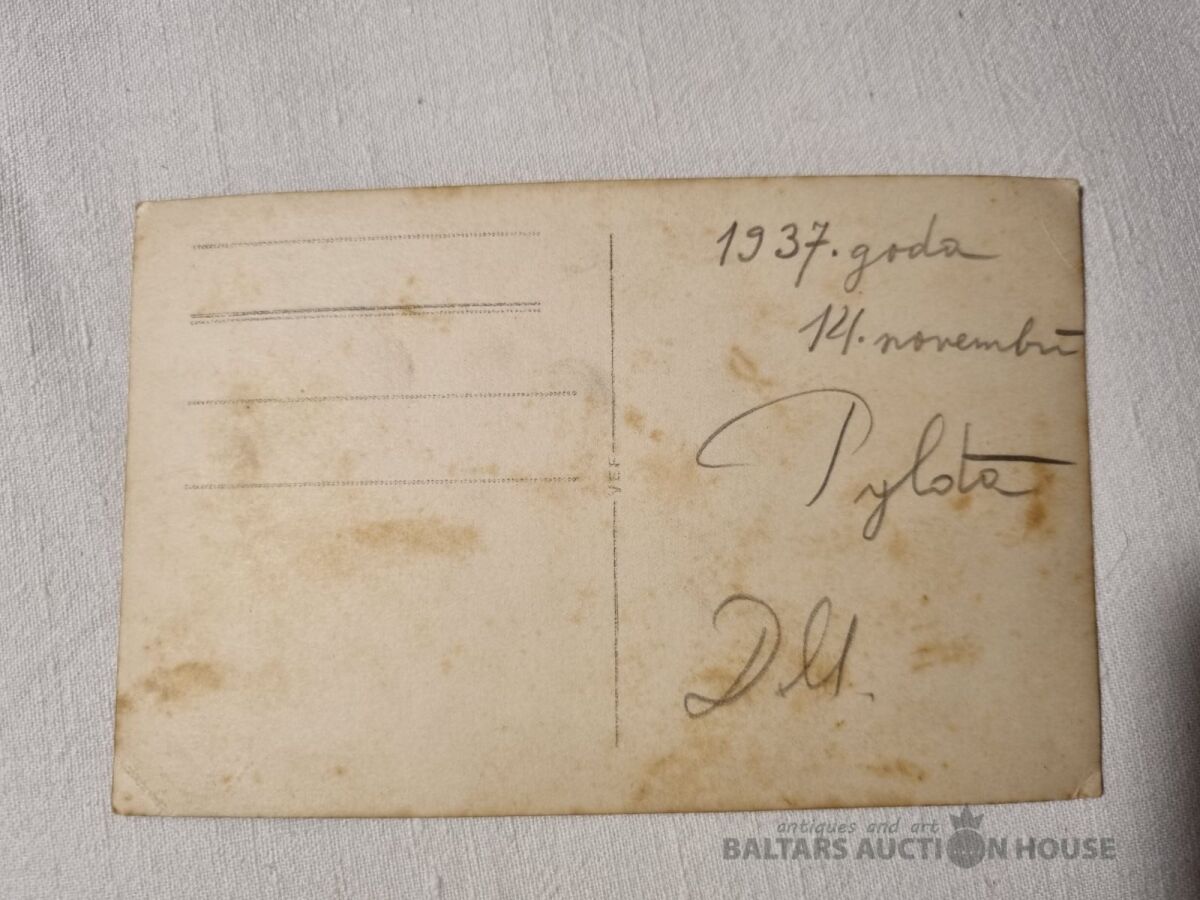 1937. goda
14. novembrī
Pylotā
VEF
antiques and art
BALTARS AUCTION HOUSE